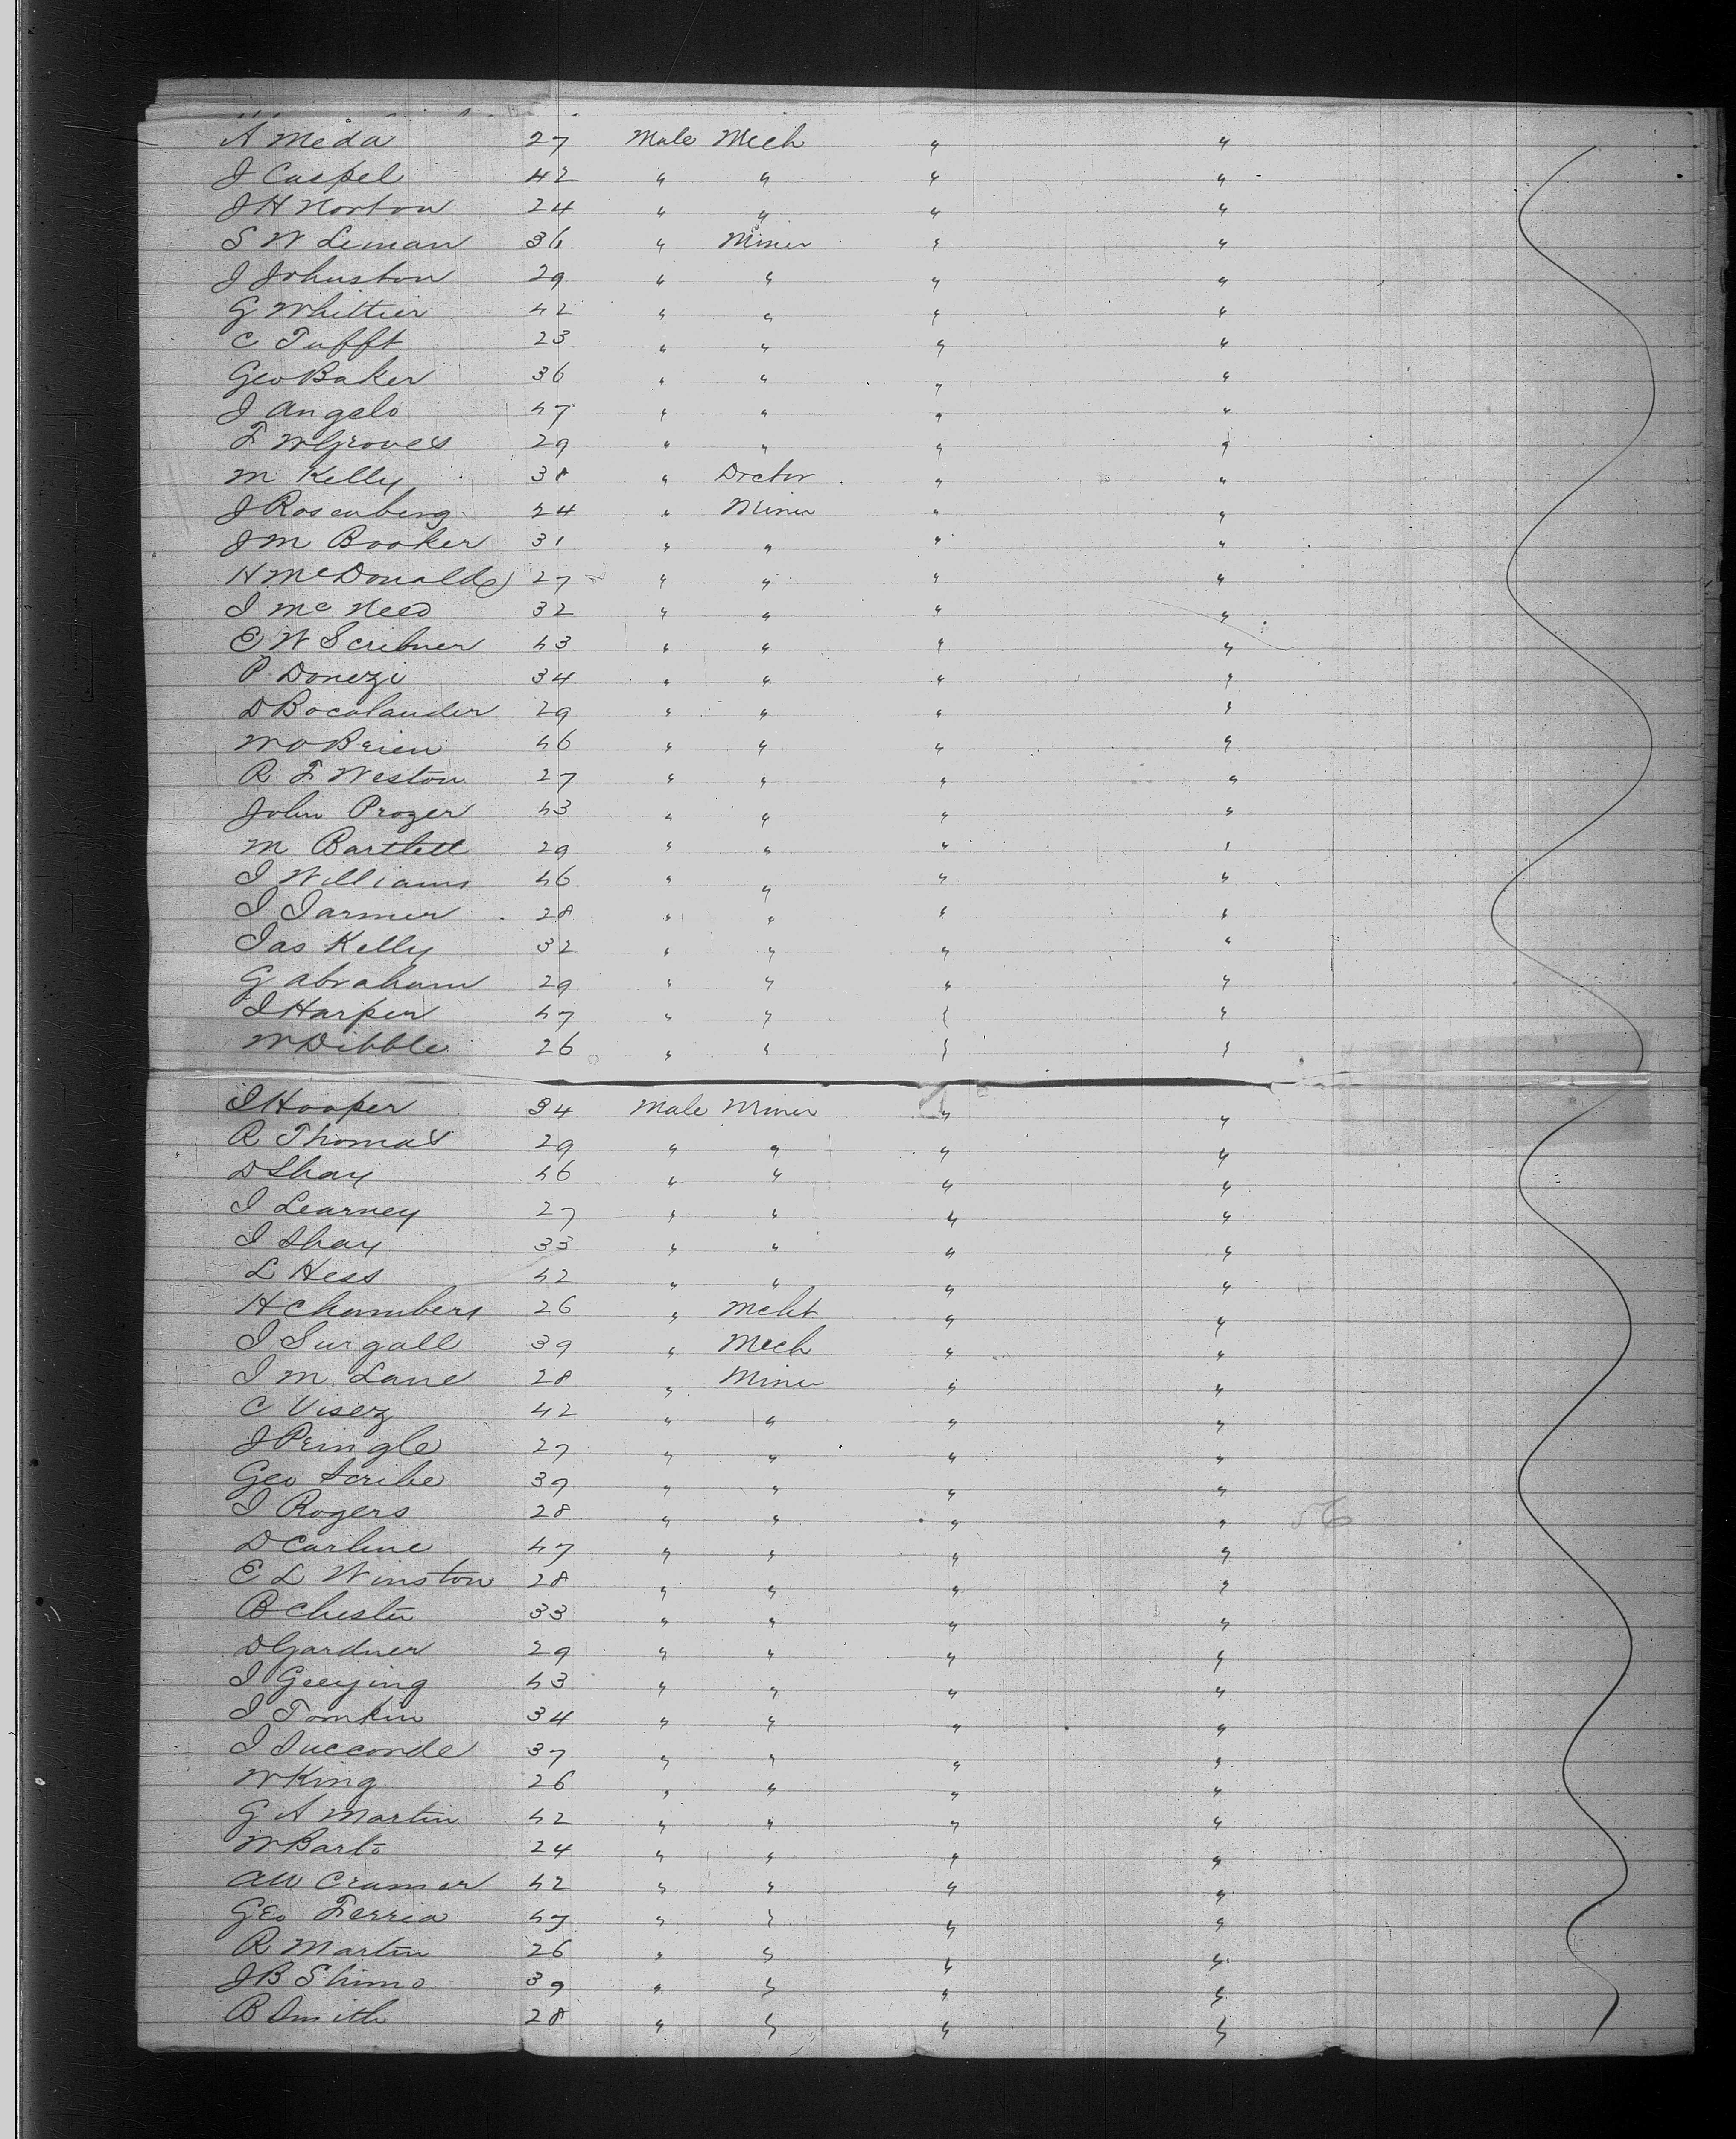 A Meda 27 Male Mech " "
J Caspel 42 " " " "
J H Norton 24 " " " "
S W Leman 36 " Miner " "
J Johnston 29 " " " "
G Whittier 42 " " " "
C Tufft 23 " " " "
Geo Baker 36 " " " "
J Angelo 47 " " " "
F W Groves 29 " " " "
M Kelly 38 " Doctor " "
J Rosenberg 24 " Miner " "
J M Booker 31 " " " "
H McDonald 27 " " " "
I Mc Need 32 " " " "
E W Scribner 43 " " " "
P Donezi 34 " " " "
D Bocalander 29 " " " "
W O Brien 46 " " " "
R F Weston 27 " " " "
John Prozer 43 " " " "
M Bartlett 29 " " " "
I Williams 46 " " " "
I Jarmer 28 " " " "
Jas Kelly 32 " " " "
G Abraham 29 " " " "
I Harper 47 " " " "
W Dibble 26 " " " "
I Hooper 34 Male Miner " "
R Thomas 29 " " " "
D Shay 46 " " " "
I Learney 27 " " " "
I Shay 33 " " " "
L Hess 42 " " " "
H Chambers 26 " Mcht " "
I Surgall 39 " Mech " "
I M Lane 28 " Miner " "
C Visez 42 " " " "
J Pringle 27 " " " "
Geo Scribe 39 " " " "
I Rogers 28 " " " "
D Carline 47 " " " "
E L Winston 28 " " " "
B Chester 33 " " " "
D Gardner 29 " " " "
I 43 " " " "
I Tomkin 34 " " " "
I Succonde 37 " " " "
W King 26 " " " "
G A Martin 42 " " " "
W Barto 24 " " " "
A W Cramer 42 " " " "
Geo Ferria 47 " " " "
R Martin 26 " " " "
J B Shimo 39 " " " "
B Smith 28 " " " "